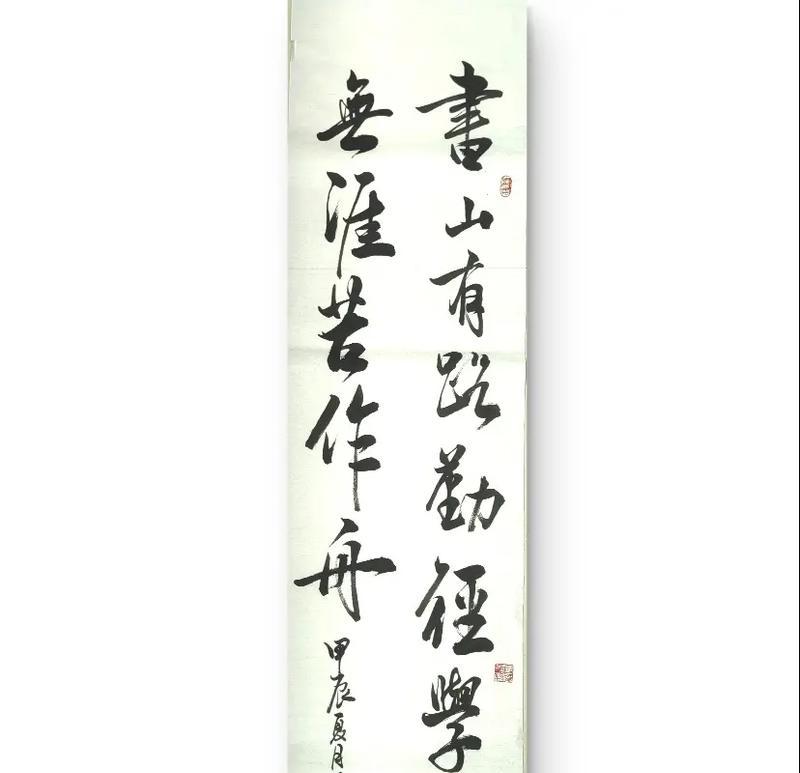 書山有路勤徑學
無涯苦作舟
甲辰夏月